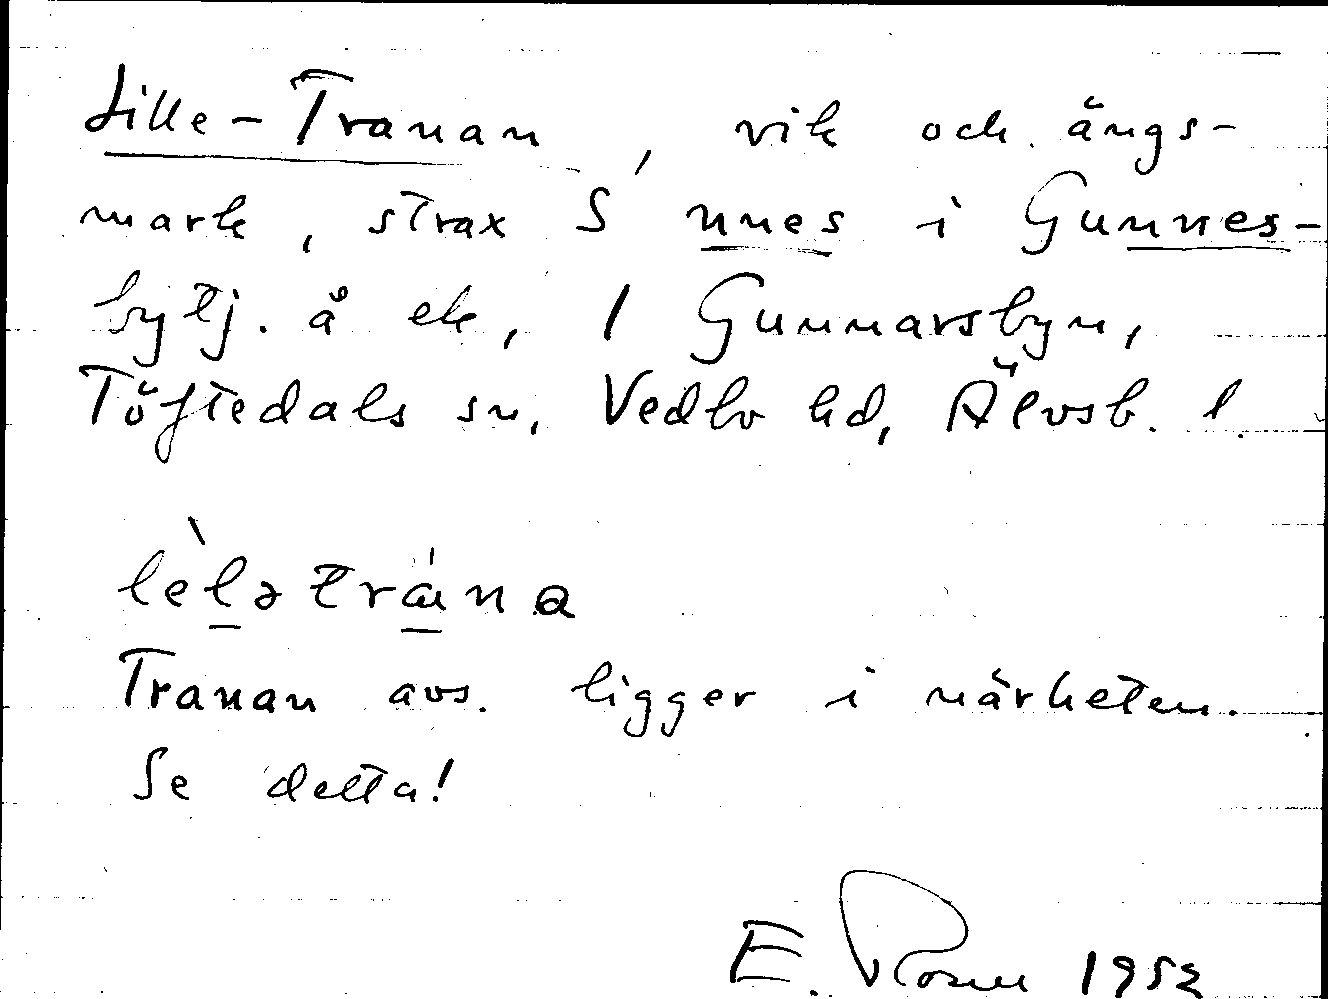 Lille-Tranan, vik och ängs-
mark, strax S nnes i Gunnes-
bytj. å ek, 1 Gunnarsbyn,
Töftedals sn, Vedbo hd, Älvsb. l.
lèlə trána
Tranan avs. ligger i närheten.
Se detta!
E. Rosen 1952